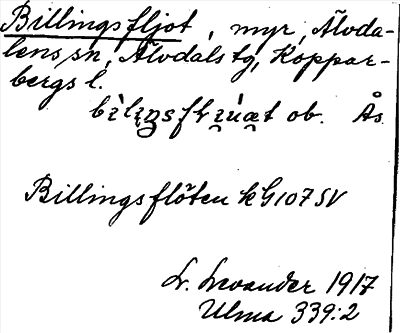 Billingsfljot, myr, Älvda-
lens sn, Älvdals tg, Koppar-
bergs l.
ob. Ås.
Billingsflöten kG107 SV
L. Levander 1917
Ulma 339:2